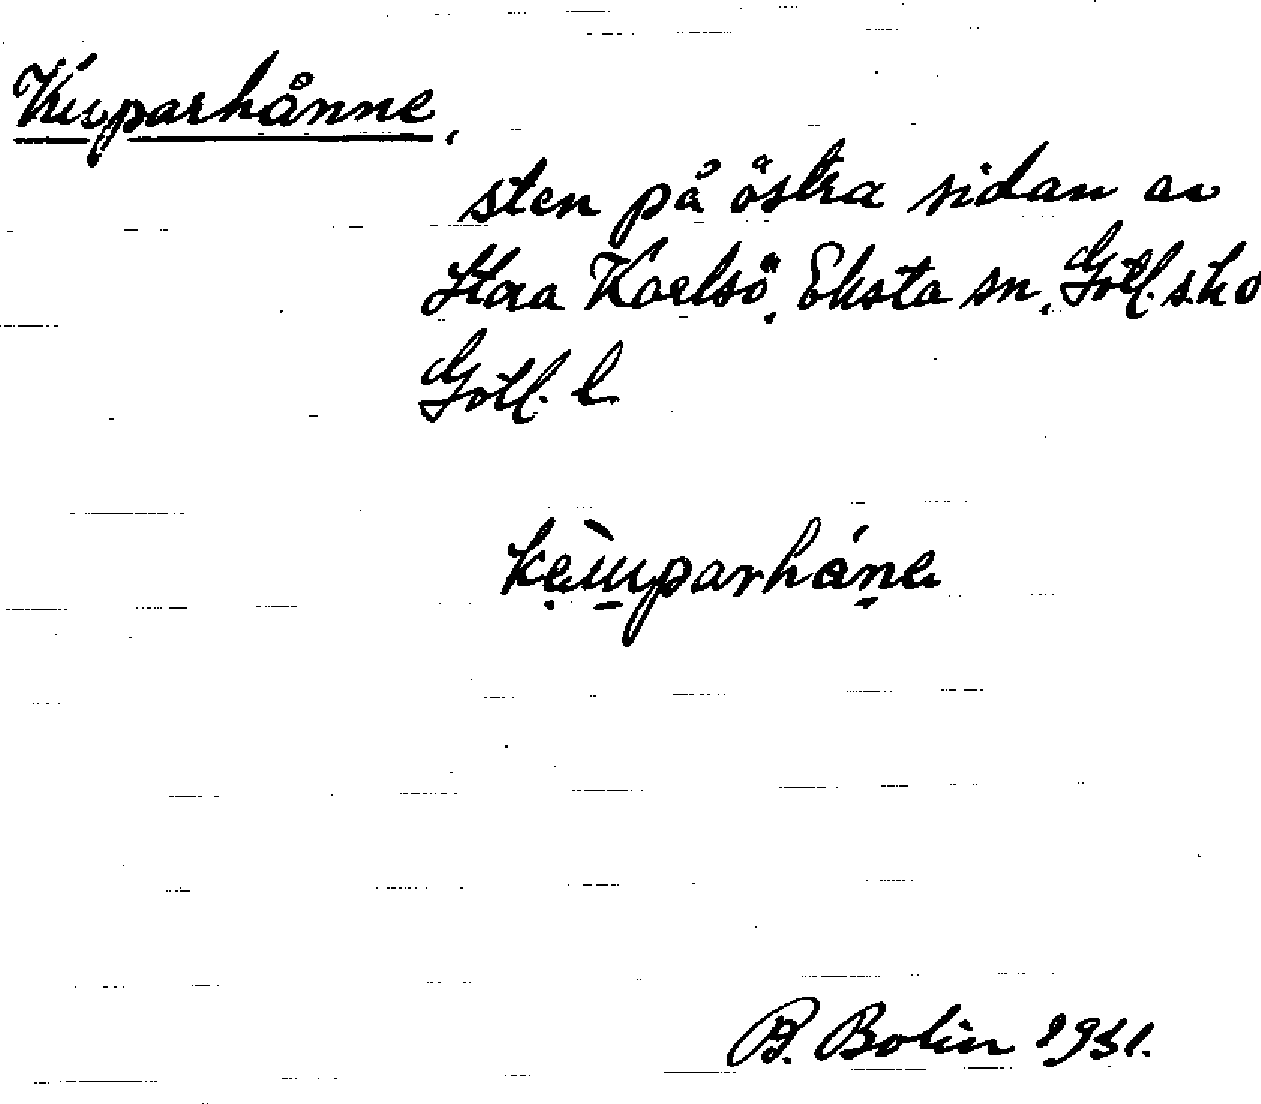 Kuparhånne,
sten på östra sidan av
Stora Karlsö, Eksta sn, Gotl. s. hd
Gotl. l.
B. Bolin 1931.